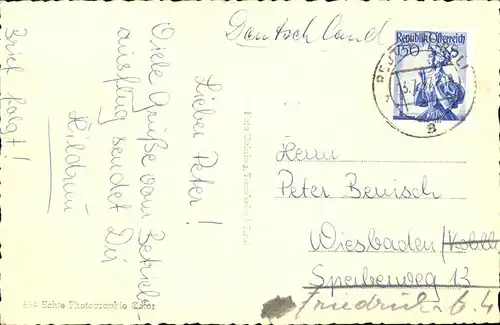 Deutschland
Republik Österreich
1.50
Lieber Peter!
Viele Grüße vom Betriebs-
ausflug sendet Dir
Hildrun
Brief folgt!
Herrn
Peter Benisch
Wiesbaden
Sperberweg 13
Friedrich
814 Echte Photographie